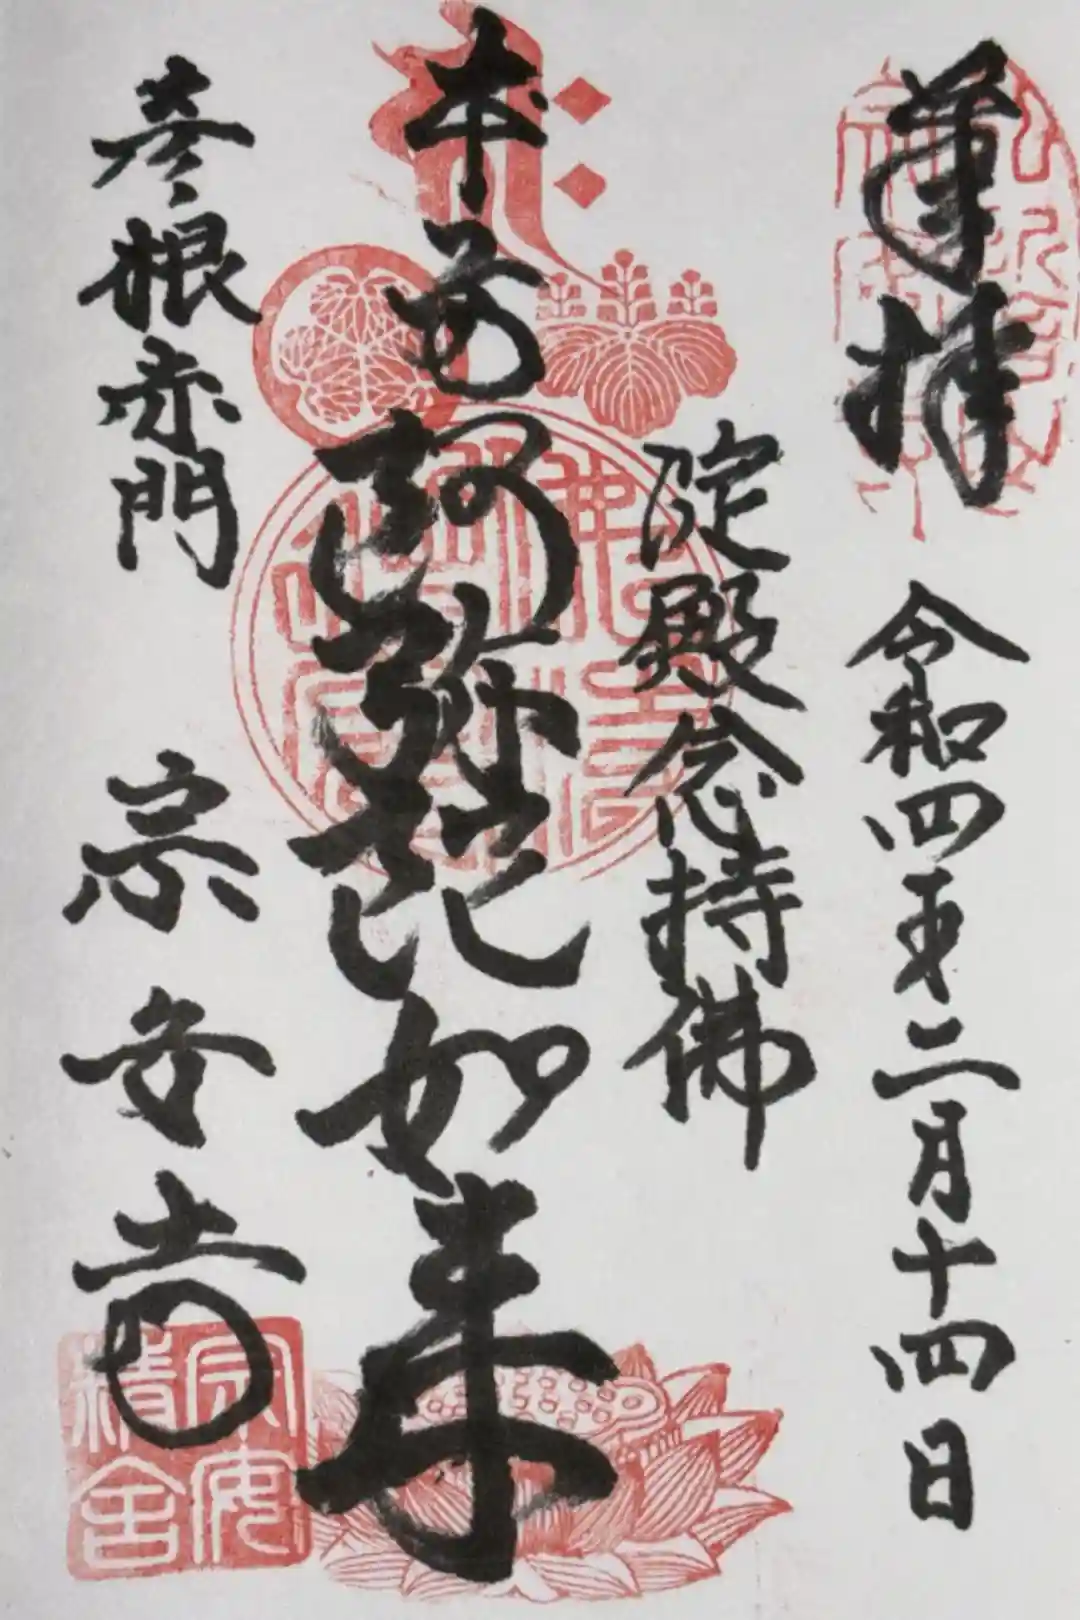 奉拝
令和四年二月十四日
淀殿念持佛
本尊阿弥陀如来
彦根赤門
宗安寺
宗安
精舎